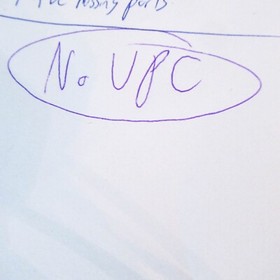 missing parts
No UPC